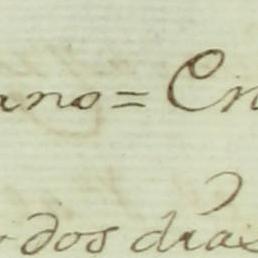 ano = Cn
dos dias